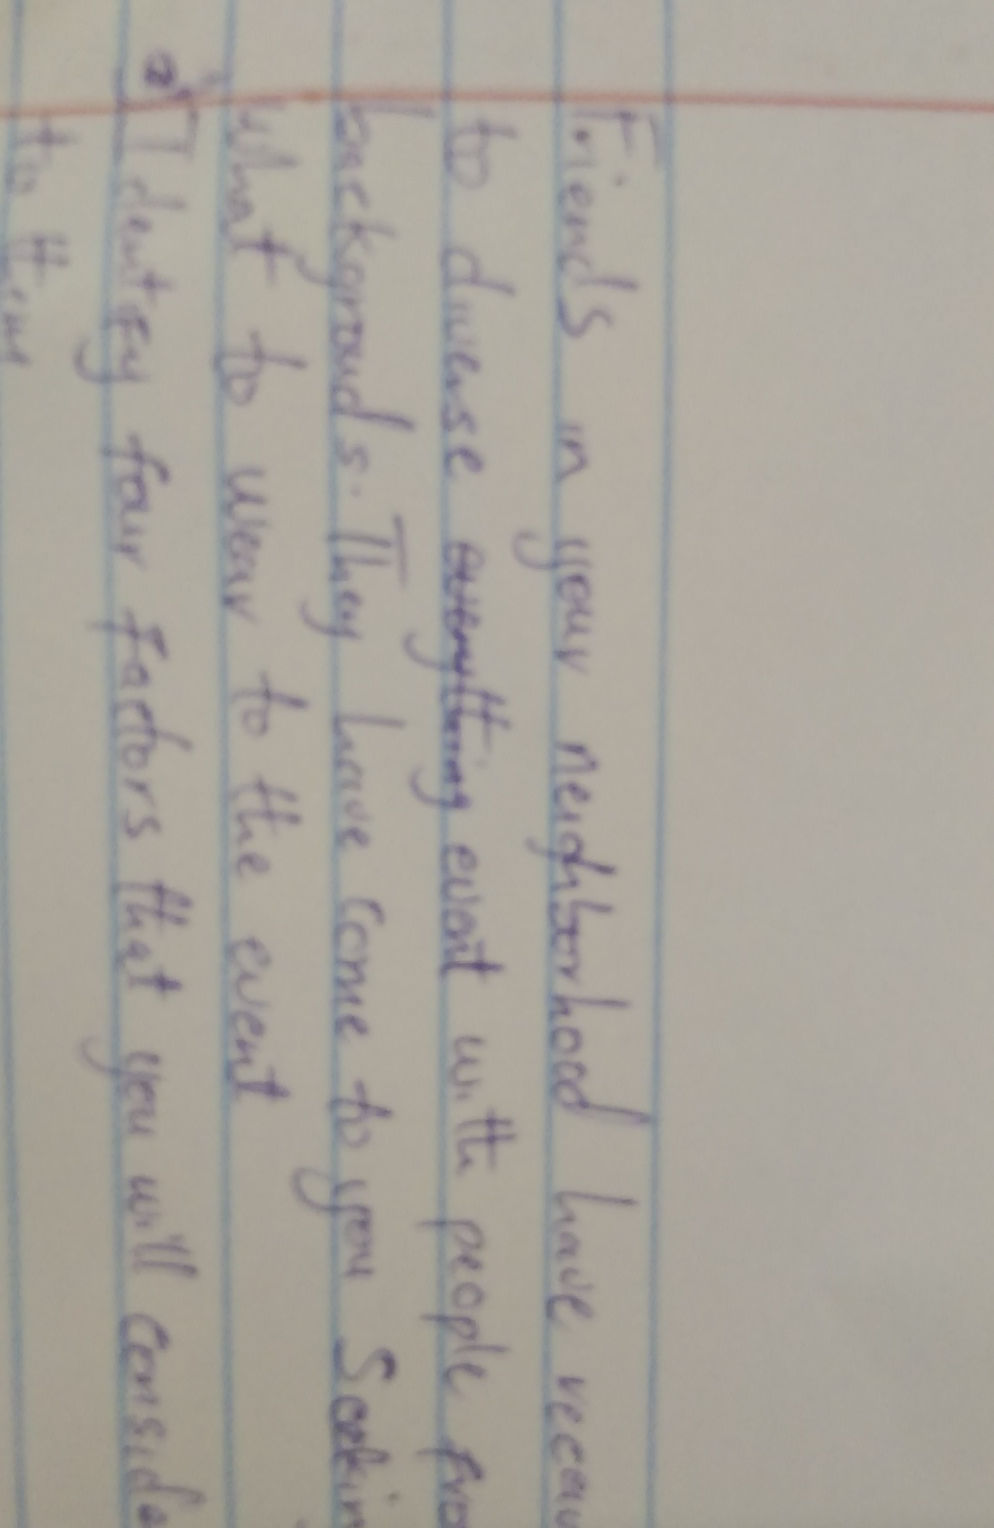 Friends in your neighborhood have recei
to diverse everything event with people fro
backgrounds. They have come to you Seekin
what to wear to the event
a) Identify four factors that you will conside
to them